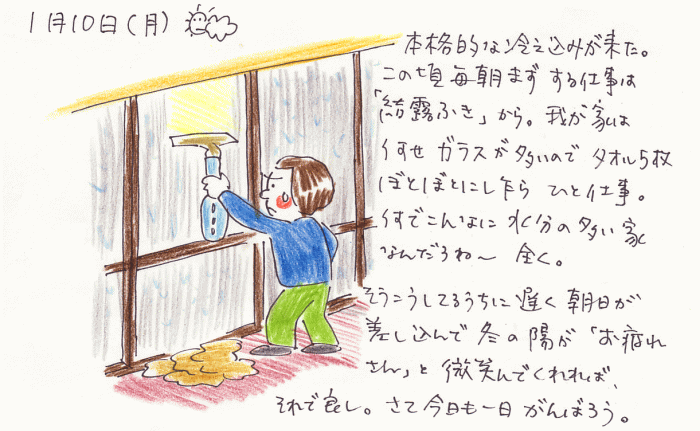 1月10日(月)
本格的な冷え込みが来た。
この頃毎朝まずする仕事は
「結露ふき」から。我が家は
何せガラスが多いのでタオル5枚
ぼとぼとにし乍らひと仕事。
何でこんなに水分の多い家
なんだろね〜 全く。
そうこうしてるうちに遅く朝日が
差し込んで冬の陽が「お疲れ
さん」と微笑んでくれれば、
それで良し。さて今日も一日がんばろう。